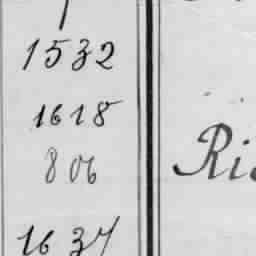 1532
1618
806 Ri
1637